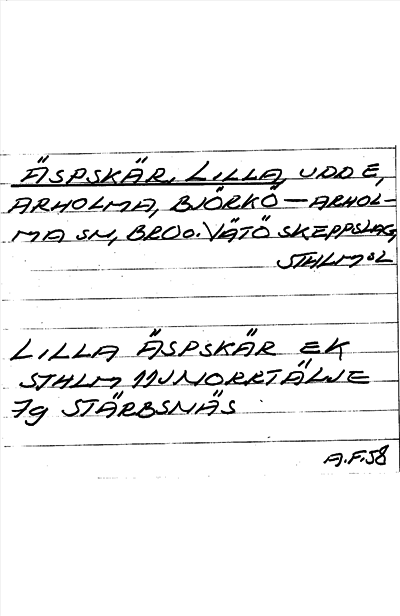 ÄSPSKÄR, LILLA, UDDE,
ARHOLMA, BJÖRKÖ—ARHOL-
MA SN, BRO o. VÄTÖ SKEPPSLAG,
STHLMS L
LILLA ÄSPSKÄR EK
STHLM 11J NORRTÄLJE
7g STÄRBSNÄS
A.F. 58